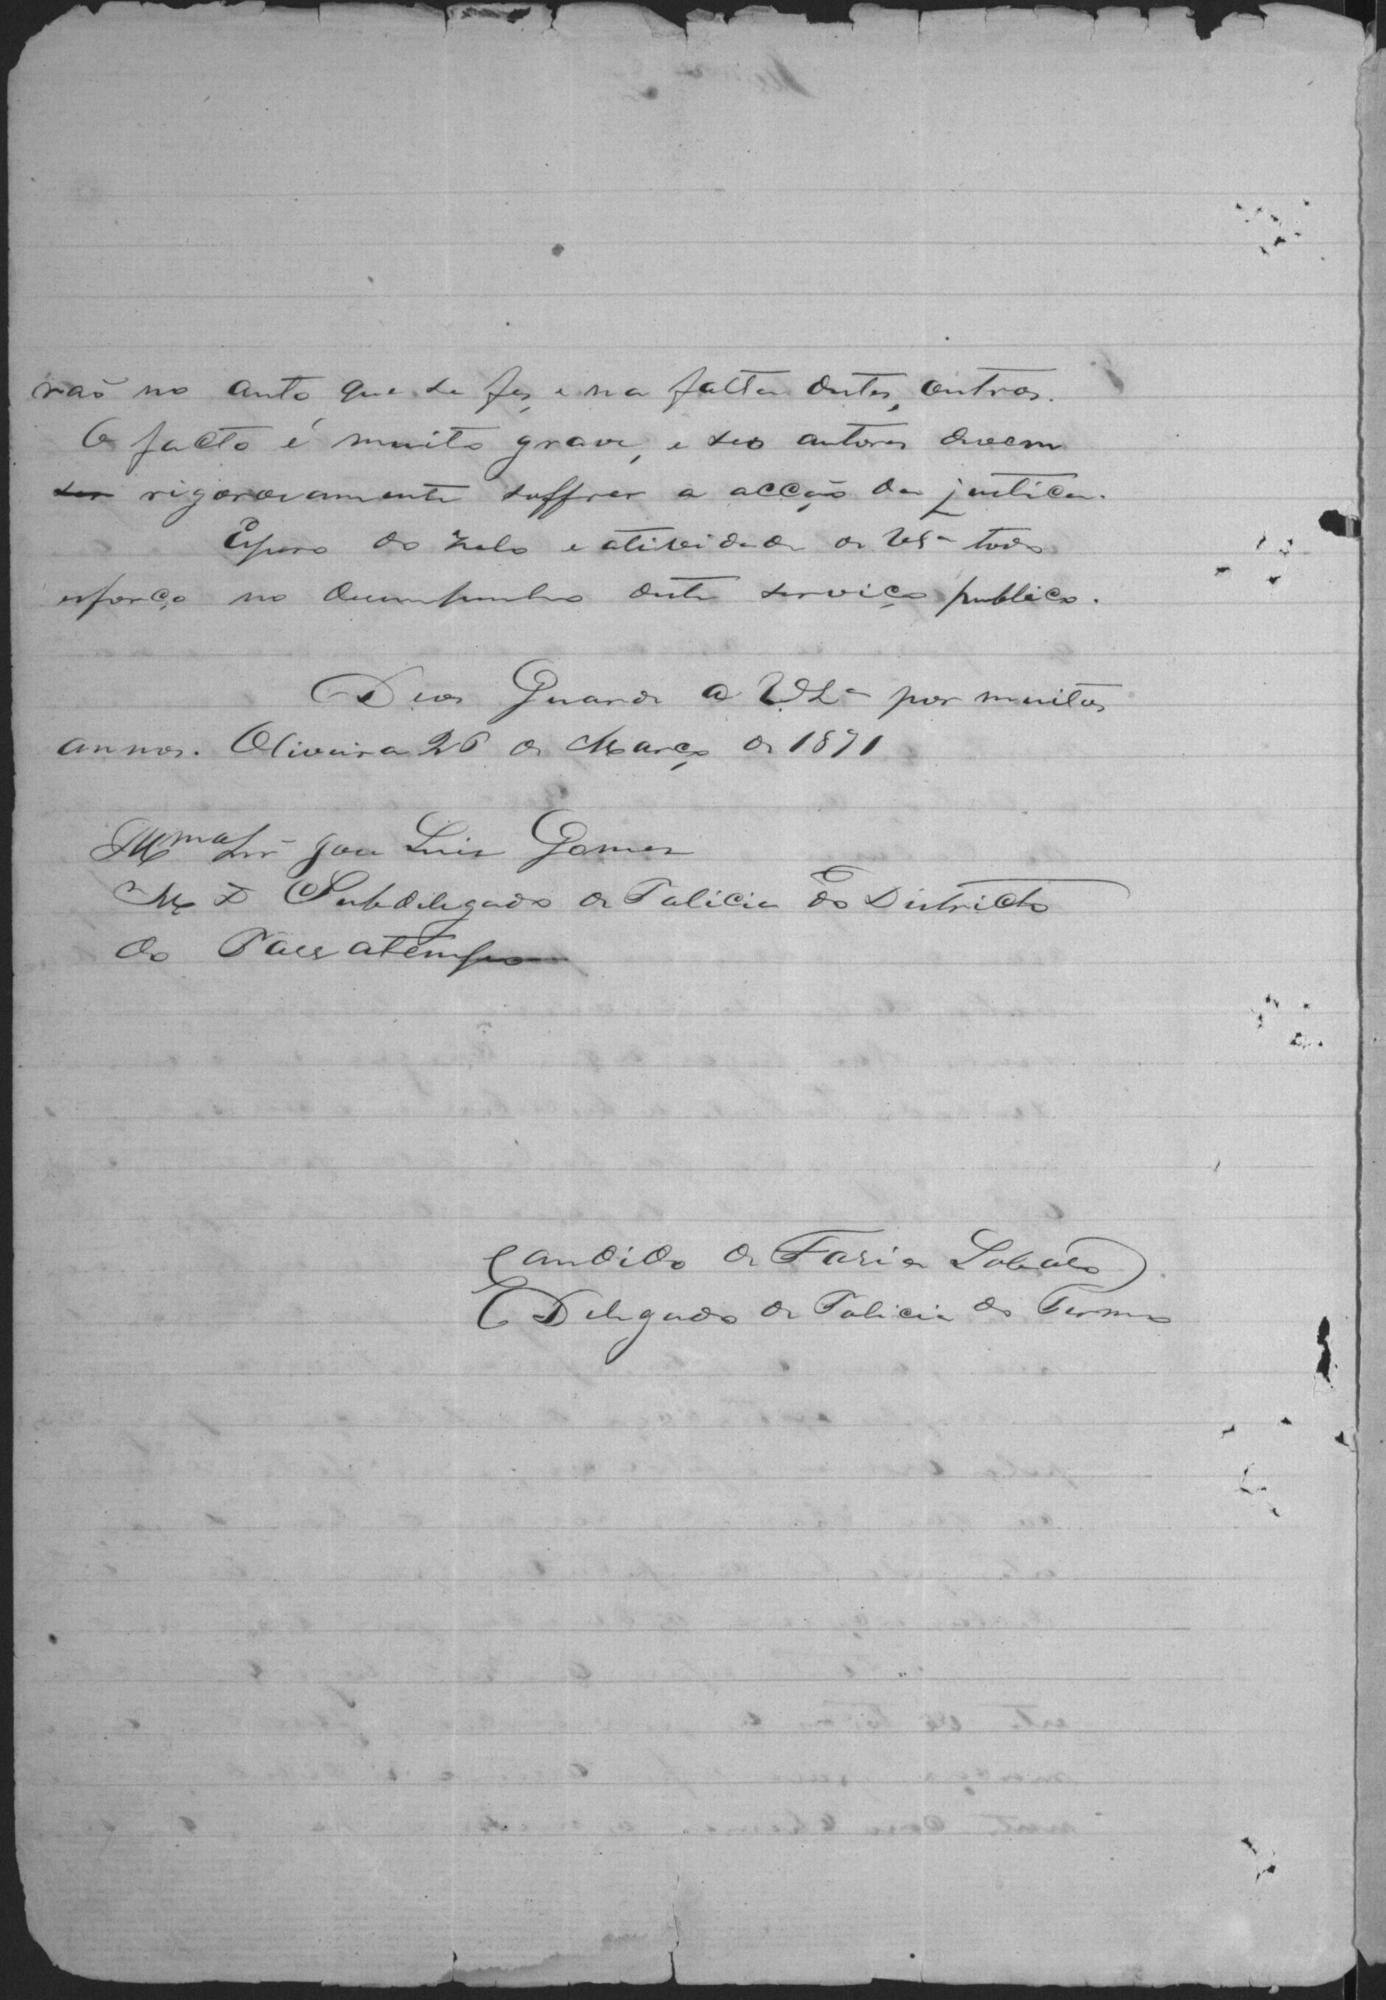 rão no auto que se fez, e na falta destes, outros.
O facto é muito grave, e seos autores devem
ser rigorosamente soffrer a acção da justiça.
Espero do zelo e atividade de VSª todo
esforço no desempenho deste serviço publico.
Deos Guarde a VSª por muitos
annos. Oliveira 26 de Março de 1871
Illmo Snr José Luis Gomes
M D Subdelegado de Policia do Districto
do Passatempo
Candido de Faria Lobato
O Delegado de Policia do Termo